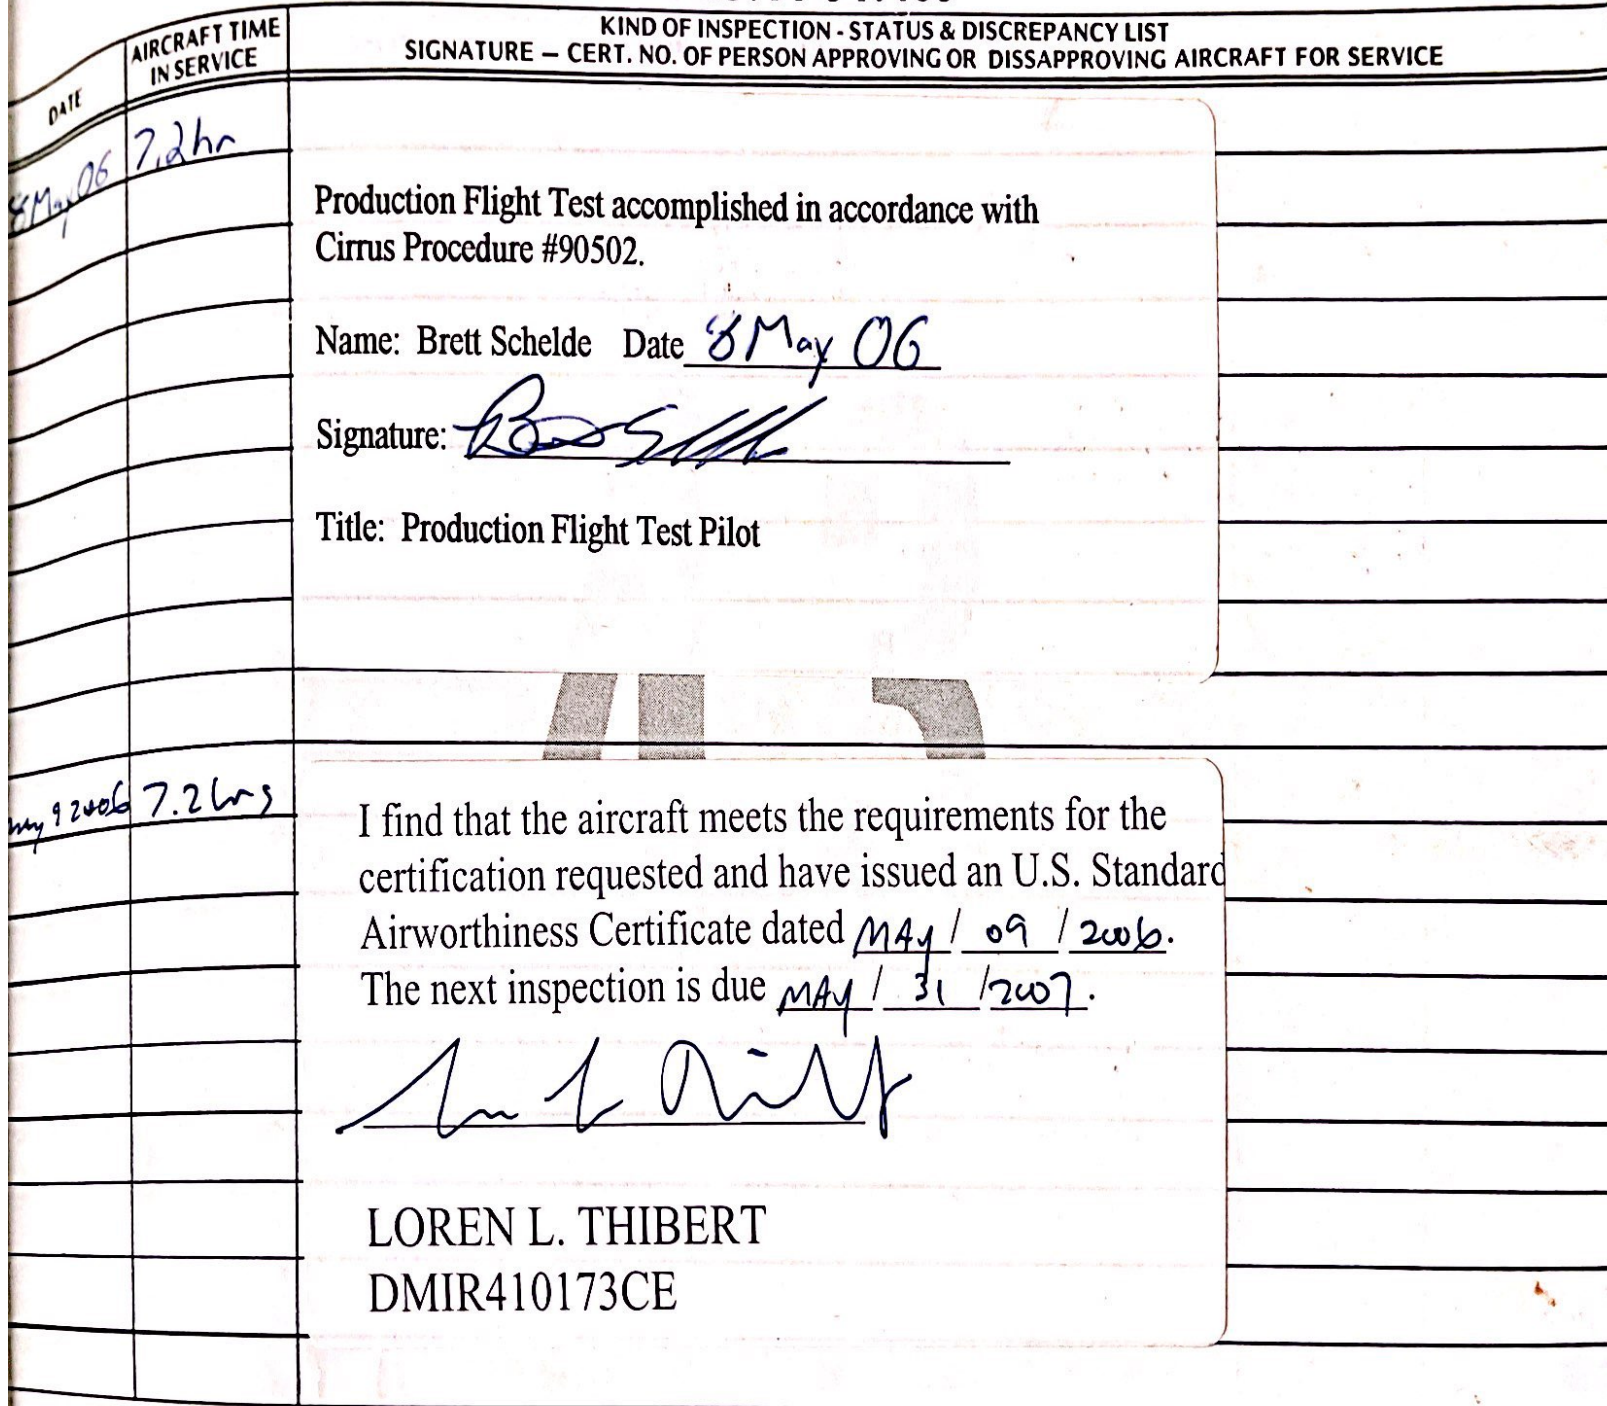 DATE
AIRCRAFT TIME
IN SERVICE
KIND OF INSPECTION - STATUS & DISCREPANCY LIST
SIGNATURE – CERT. NO. OF PERSON APPROVING OR DISSAPPROVING AIRCRAFT FOR SERVICE
8 May 06 7.2hr
Production Flight Test accomplished in accordance with
Cirrus Procedure #90502.
Name: Brett Schelde Date 8 May 06
Signature:
Title: Production Flight Test Pilot
May 9 2006 7.2 hrs
I find that the aircraft meets the requirements for the
certification requested and have issued an U.S. Standard
Airworthiness Certificate dated MAY / 09 / 2006.
The next inspection is due MAY / 31 / 2007.
LOREN L. THIBERT
DMIR410173CE